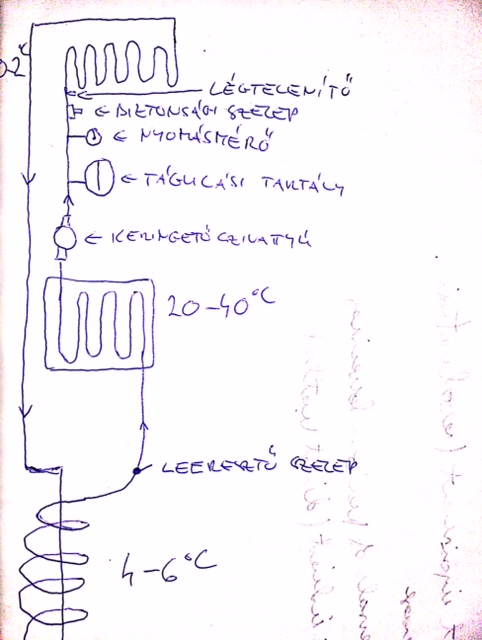 2°
LÉGTELENÍTŐ
BIZTONSÁGI SZELEP
NYOMÁSMÉRŐ
TÁGULÁSI TARTÁLY
KERINGETŐ SZIVATTYÚ
20-40°C
LEERESZTŐ SZELEP
4-6°C